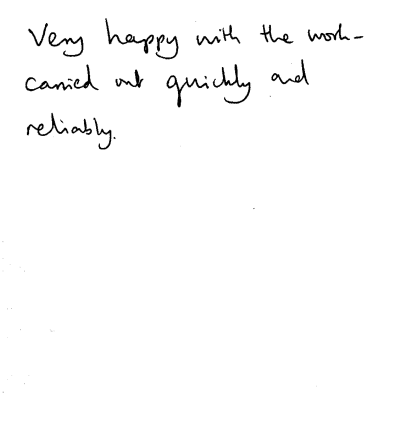 Very happy with the work-
carried out quickly and
reliably.